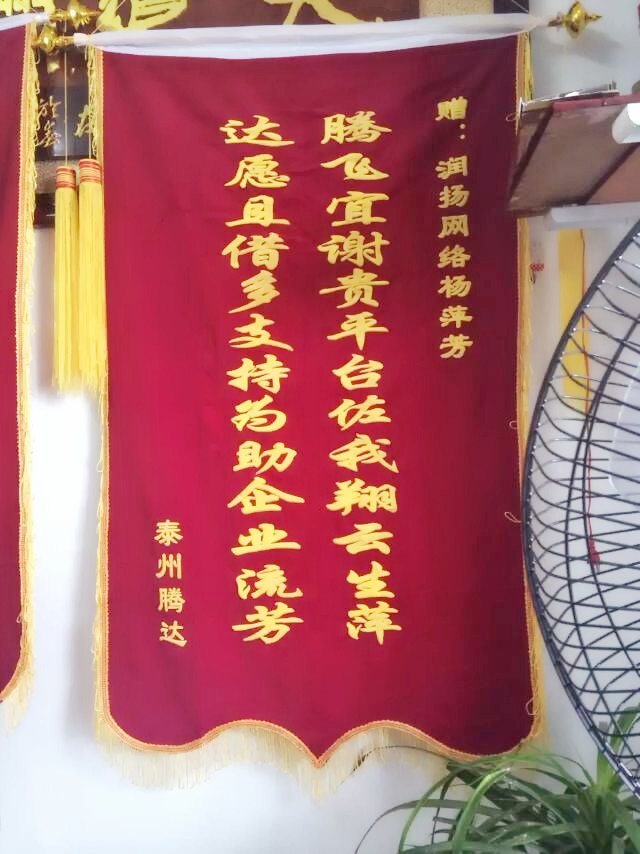 赠：润扬网络杨萍芳
腾飞宜谢贵平台佐我翔云生萍
达愿且借多支持为助企业流芳
泰州腾达